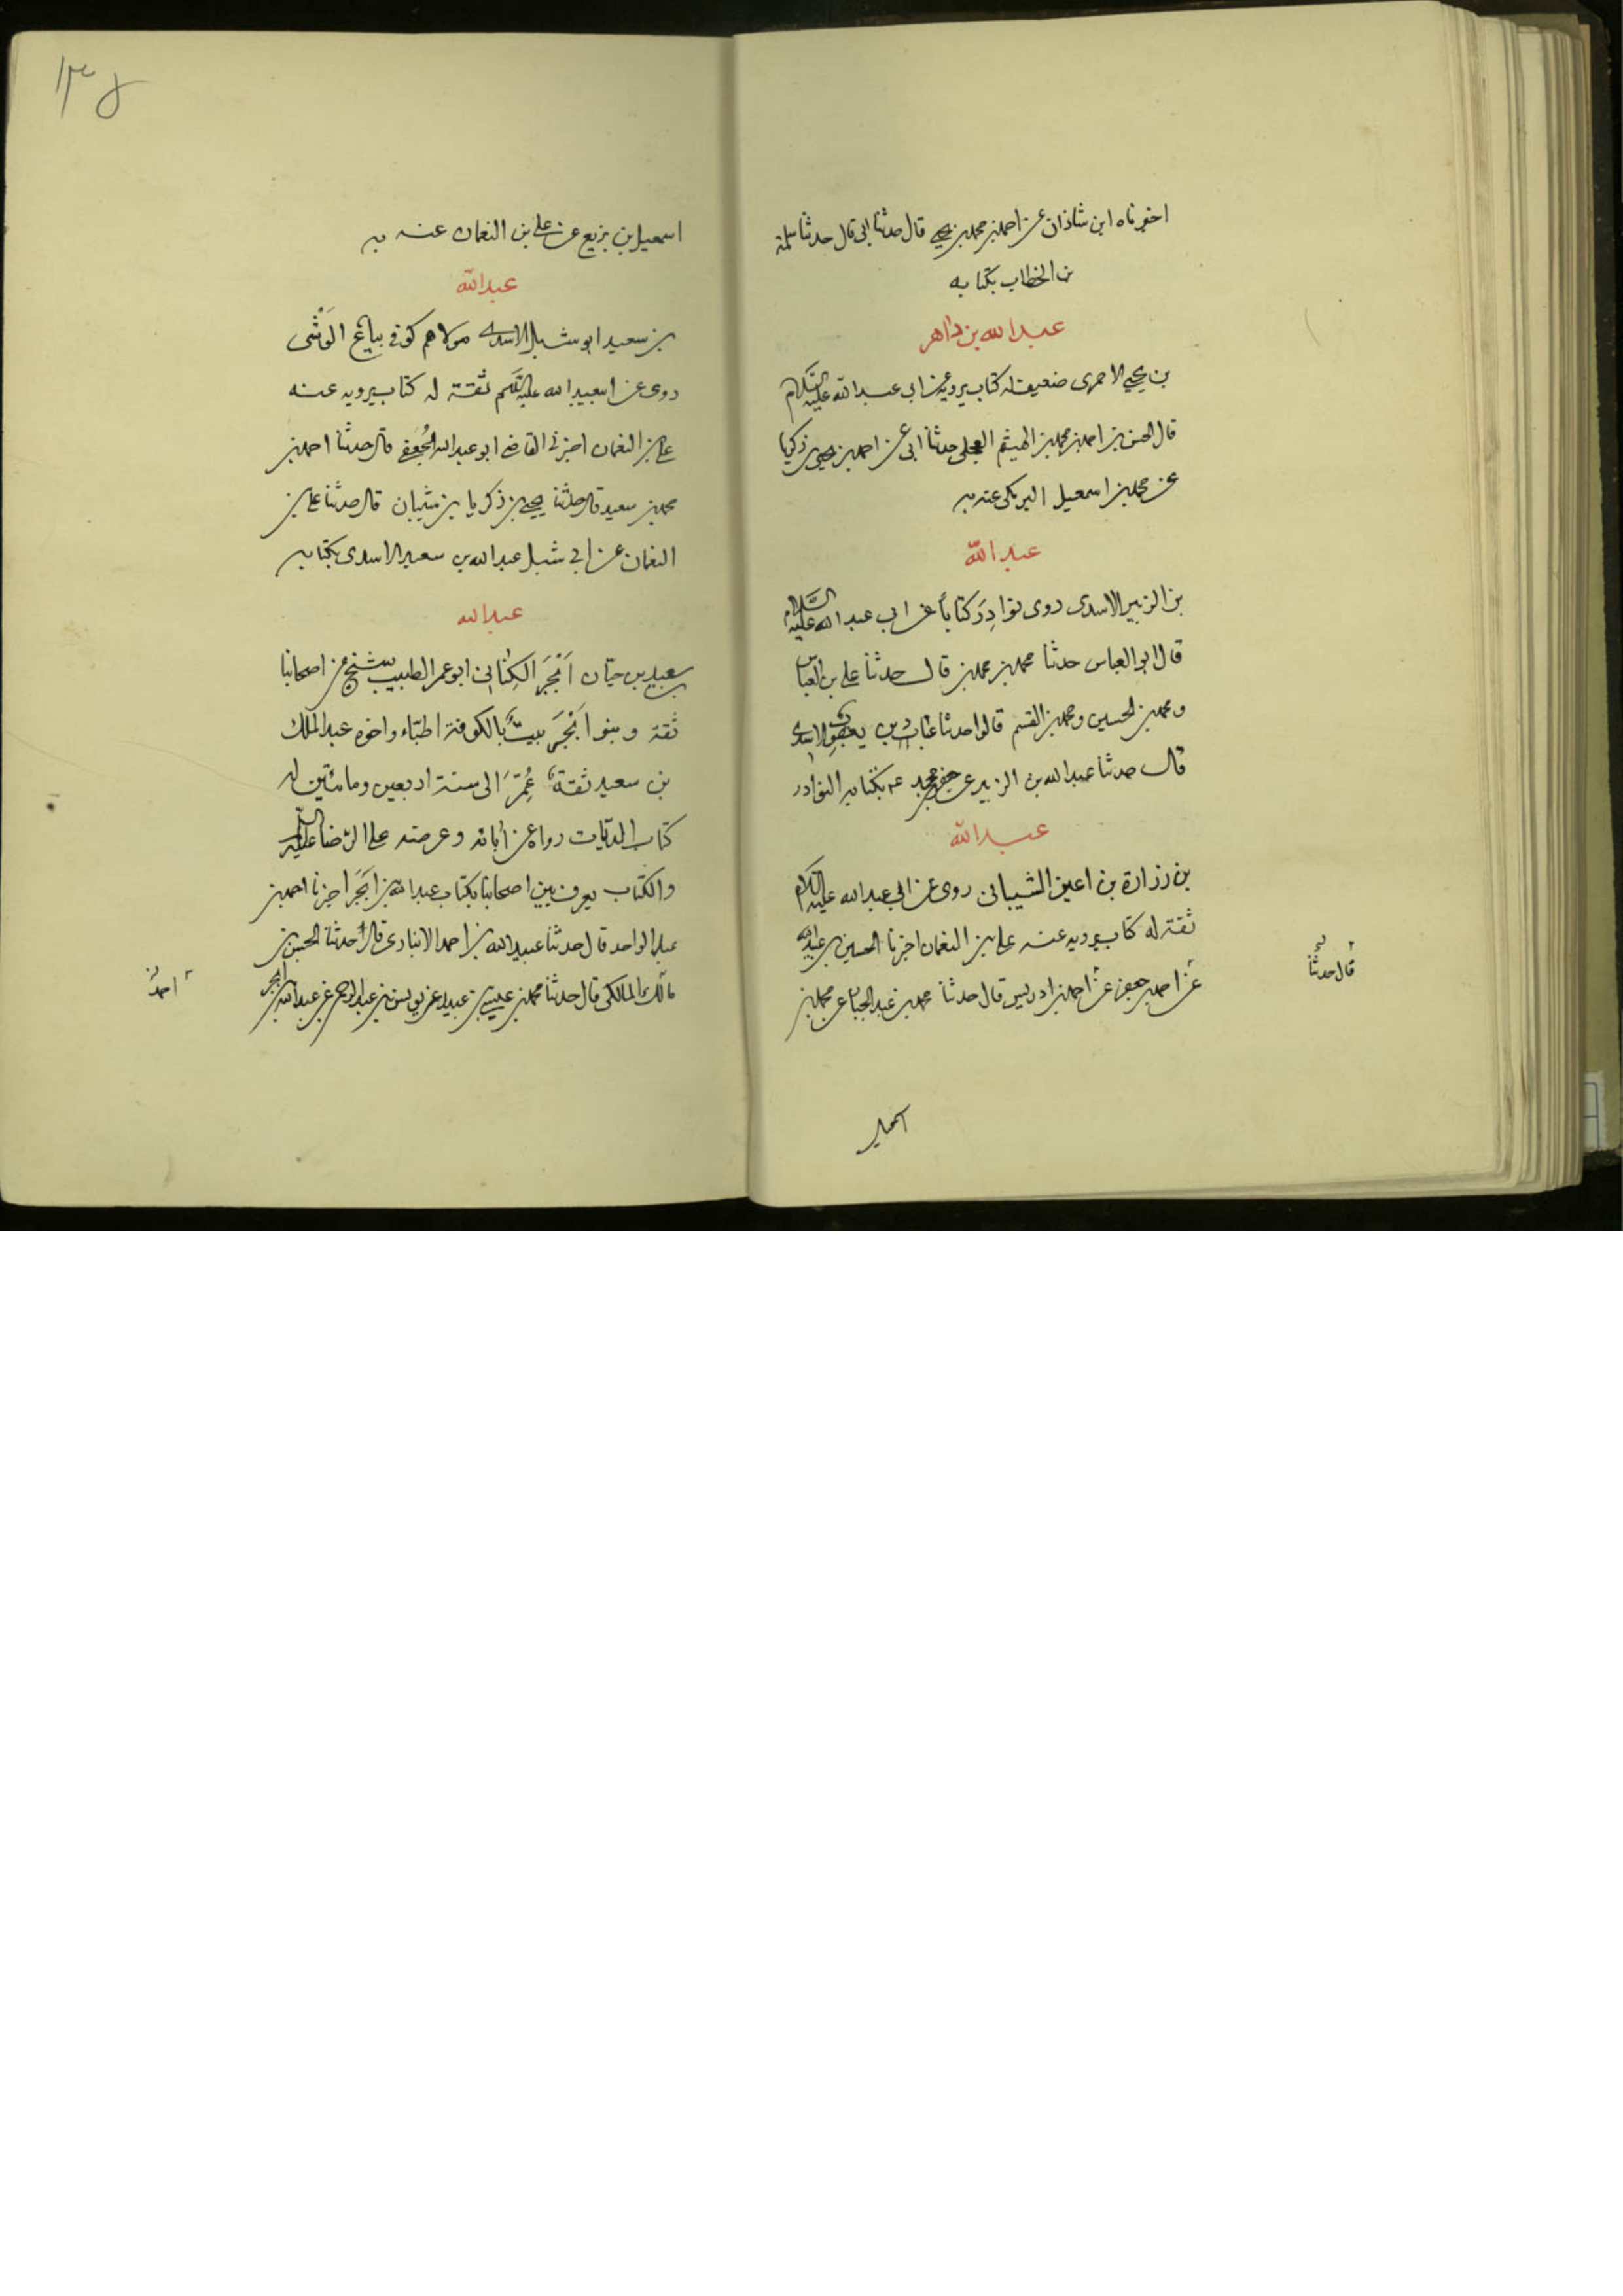 اخبرناه ابن شاذان عن احمد بن محمد بن يحيى قال حدثنا ابى قال حدثنا سلمة
بن الخطاب بكتابه
عبد الله بن داهر
بن يحيى الاحمرى ضعيف له كتاب يرويه عن ابى عبد الله عليه السلام
قال الحسن بن احمد بن محمد بن الهيثم العجلى حدثنا ابى عن احمد بن يحيى بن زكريا
عن محمد بن اسمعيل البرمكى عنه به
عبد الله
بن الزبير الاسدى روى نوادر كتاباً عن ابى عبد الله عليه السلام
قال ابو العباس حدثنا محمد بن محمد بن قال حدثنا على بن العباس
ومحمد بن الحسين ومحمد بن القسم قالوا حدثنا عباد بن يعقوب الاسدى
قال حدثنا عبد الله بن الزبير عن جعفر بن محمد ع بكتابه النوادر
عبد الله
بن زرارة بن اعين الشيبانى روى عن ابى عبد الله عليه السلام
ثقة له كتاب يرويه عنه على بن النعمان اخبرنا الحسين بن عبيد الله
عن احمد بن جعفر عن احمد بن ادريس قال حدثنا محمد بن عبد الجبار عن محمد بن
قال حدثنا
اسمعيل
١٣٥
اسمعيل بن بزيع عن على بن النعمان عنه به
عبد الله
بن سعيد ابو شبل الاسدى مولاهم كوفى بياع الوَشْى
روى عن ابى عبد الله عليه السلم ثقة له كتاب يرويه عنه
على بن النعمان اخبرنى القاضى ابو عبد الله الجُعفى قال حدثنا احمد بن
محمد بن سعيد قال حدثنا يحيى بن زكريا بن شيبان قال حدثنا على بن
النعمان عن ابى شبل عبد الله بن سعيد الاسدى بكتابه
عبد الله
بن سعيد بن حيان اَبْجَرَ الكِنَانى ابو عمر الطبيب شيخ من اصحابنا
ثقة وبنو ابْجَرَ بيتٌ بالكوفة اطبّاء واخوه عبد الملك
بن سعيد ثقةٌ عُمِّرَ الى سنة اربعين ومائتين له
كتاب الديات رواه عن آبائه وعرضه على الرضا عليه السلم
والكتاب يعرف بين اصحابنا بكتاب عبد الله بن ابْجَرَ اخبرنا احمد بن
عبد الواحد قال حدثنا عبيد الله بن احمد الانبارى قال حدثنا الحسن بن
احمد
مالك المالكى قال حدثنا محمد بن عيسى بن عبيد عن يونس بن عبد الرحمن عن عبد الله بن ابجر